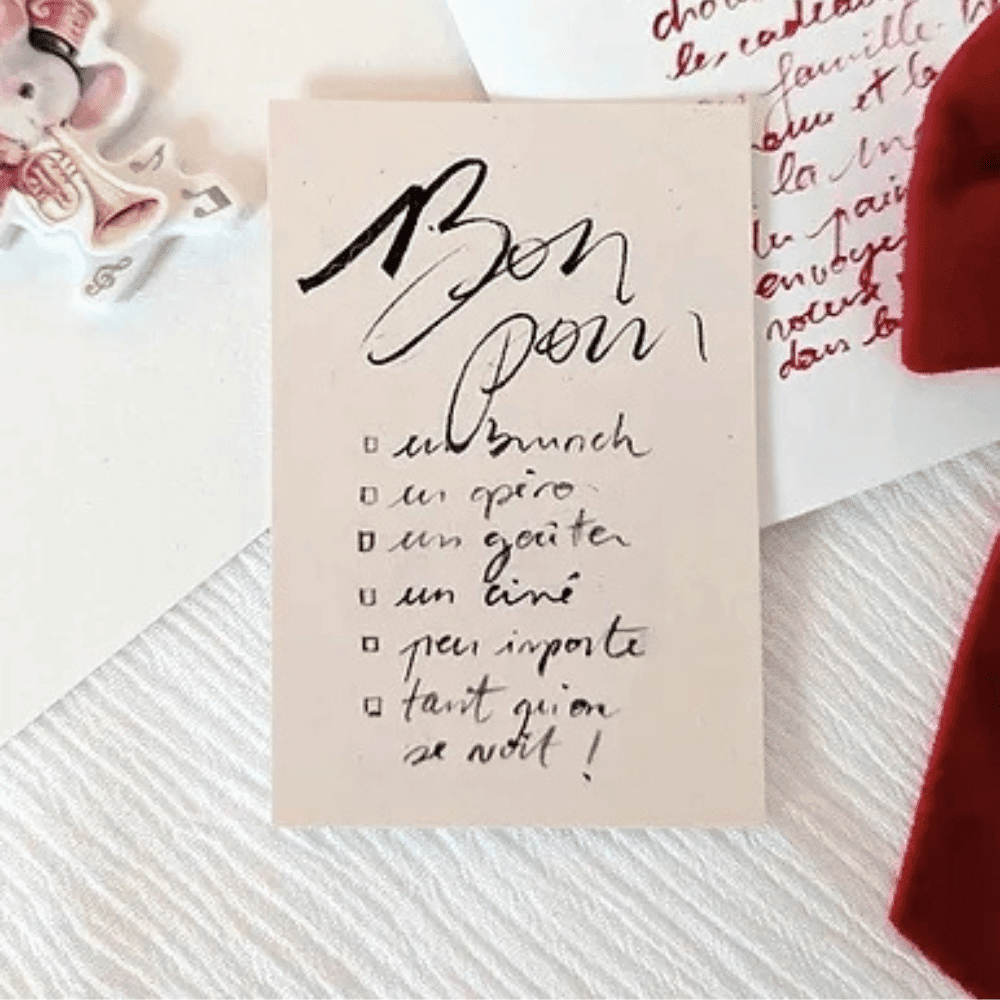 Bon
pour
un Brunch
un apéro
un goûter
un ciné
peu importe
tant qu'on
se voit !
les cadeaux
famille
et la
la
envoyer
dans la